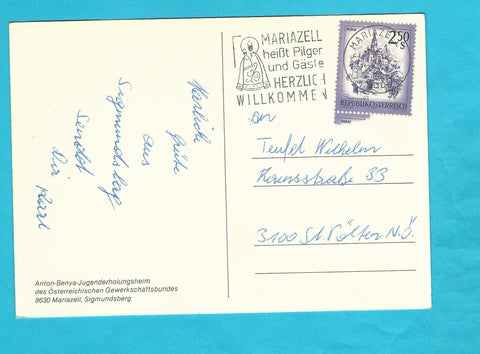 MARIAZELL
heißt Pilger
und Gäste
HERZLICH
WILLKOMMEN
MARIAZELL
2.50
S
REPUBLIK ÖSTERREICH
An
Teufel Wilhelm
33
3100 St. Pölten N.Ö.
Herzliche
Grüße
aus
Sigmundsberg
Sendet
Dir Karl
Anton-Benya-Jugenderholungsheim
des Österreichischen Gewerkschaftsbundes
8630 Mariazell, Sigmundsberg